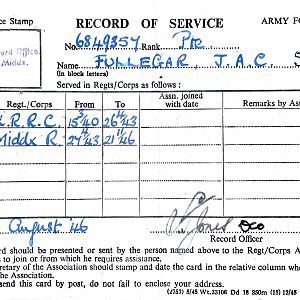 ce Stamp RECORD OF SERVICE ARMY FO
ord Office,
Middx.
No. 6849357 Rank Pte
FULLEGAR, J.A.C.
(in block letters)
Served in Regts/Corps as follows:
Regt./Corps From To Assn. joined with date Remarks by Ass
K.R.R.C. 15/3/40 26/11/43
Middx R. 27/11/43 21/11/46
August '46
Record Officer
rd should be presented or sent by the person named above to the Regt/Corps A
s to join or from which he requires assistance.
cretary of the Association should stamp and date the card in the relative column wh
the Association.
send this card by post, do not fail to enclose your address.
(2757) 8/45 Wt.33106 Dd 18 850m (15) 12/45